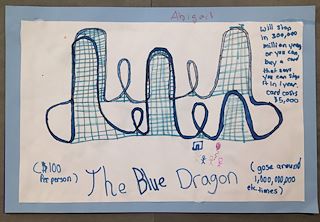 Abigail
Will stop
in 300,000
million years
or you can
buy a card
that says
you can stop
it in 1 year.
card costs
$5,000
($100
Per person)
The Blue Dragon
(gose around
1,000,000,000
etc. times)